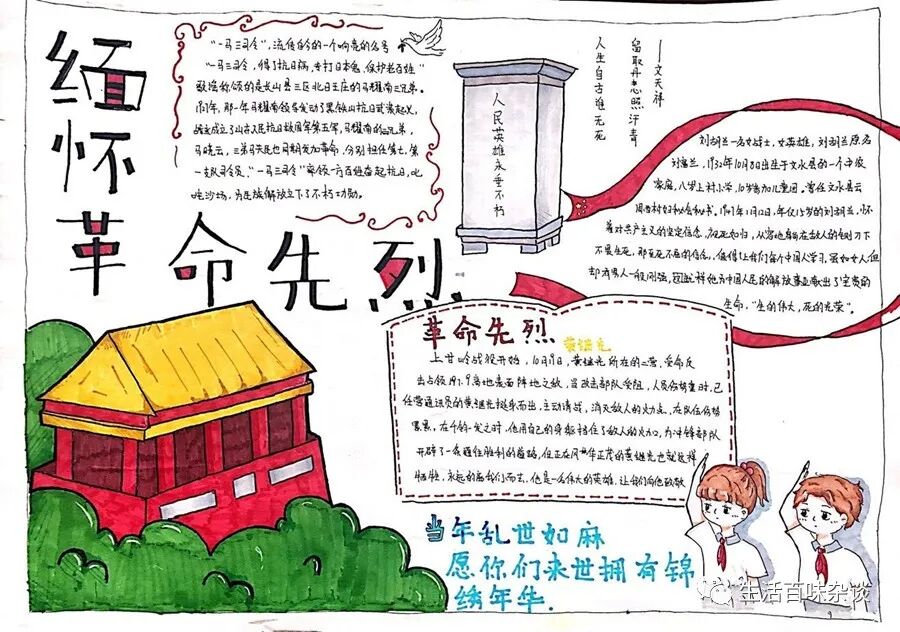 缅怀
革命先烈
"一马三司令",流传至今的一个响亮的名号
"一马三司令,得了抗日病,专打日本鬼,保护老百姓"
歌谣称颂的是长山县三区北旺庄的马耀南三兄弟。
马晓云,三弟马天民也同期参加革命,分别担任
支队司令员,"一马三司令"率领一方百姓奋起抗日,叱
咤沙场,为民族解放立下了不朽功勋。
人民英雄永垂不朽
人生自古谁无死
留取丹心照汗青
——文天祥
刘胡兰一名女战士,女英雄,刘胡兰原名
刘富兰,1932年10月8日出生于文水县的一个中农
家庭,八岁上村小学,10岁参加儿童团,曾任文水县云
周西村妇救会秘书。1947年1月12日,年仅15岁的刘胡兰,怀
着对共产主义的坚定信念,视死如归,从容地躺在敌人的铡刀下
不畏生死,
值得让我们每个中国人学习,虽如女人但
却有男人一般刚强,
她为中国人民的解放事业献出了宝贵的
生命,"生的伟大,死的光荣"。
革命先烈
黄继光
上甘岭战役开始,10月19日,黄继光所在的二营,受命反
出占领597.9高地表面阵地之敌,当攻击部队受阻,人员伤势重时,已
任营通讯员的黄继光挺身而出,主动请战,消灭敌人的火力点,在队伍伤势
累累,在千钧一发之时,他用自己的身躯挡住了敌人的火力口,为冲锋部队
开辟了一条通往胜利的道路,但正在风华正茂的黄继光也就这样
牺牲,永远的离我们而去,他是一名伟大的英雄,让我们向他致敬
当年乱世如麻
愿你们来世拥有锦
绣年华.
生活百味杂谈